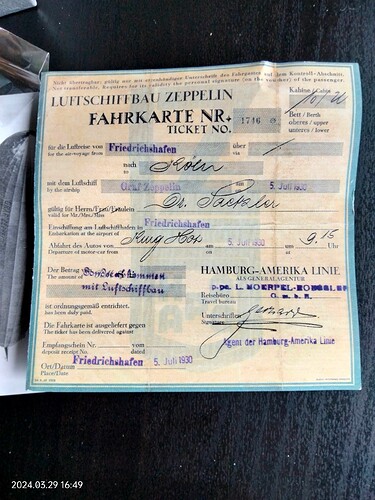 Nicht übertragbar, gültig nur mit eigenhändiger Unterschrift des Fahrgastes auf dem Kontroll-Abschnitt.
Not transferable. Requires for its validity the personal signature (on the voucher) of the passenger.
LUFTSCHIFFBAU ZEPPELIN
Kabine / Cabin
FAHRKARTE NR.
TICKET NO.
1746
Bett / Berth
oberes / upper
unteres / lower
für die Luftreise von Friedrichshafen über
for the air-voyage from via
nach Köln
to
mit dem Luftschiff Graf Zeppelin am 5. Juli 1930
by the airship on
gültig für Herrn/Frau/Fräulein Dr.
valid for Mr./Mrs./Miss
Einschiffung am Lufthafen in Friedrichshafen
Embarkation at the airport of
Abfahrt des Autos von am 5. Juli 1930 um 9.15 Uhr
Departure of motor-car from on at
Der Betrag von
The amount of
mit Luftschiffbau
ist ordnungsgemäß entrichtet.
has been duly paid.
HAMBURG-AMERIKA LINIE
ALS GENERALAGENT
Reisebüro G.m.b.H.
Travel bureau
Unterschrift
Signature
Die Fahrkarte ist ausgeliefert gegen
The ticket has been delivered against
Agent der Hamburg-Amerika-Linie
Empfangschein Nr. vom
deposit receipt No. dated
Friedrichshafen 5. Juli 1930
Ort/Datum
Place/Date
2024.03.29 16:49